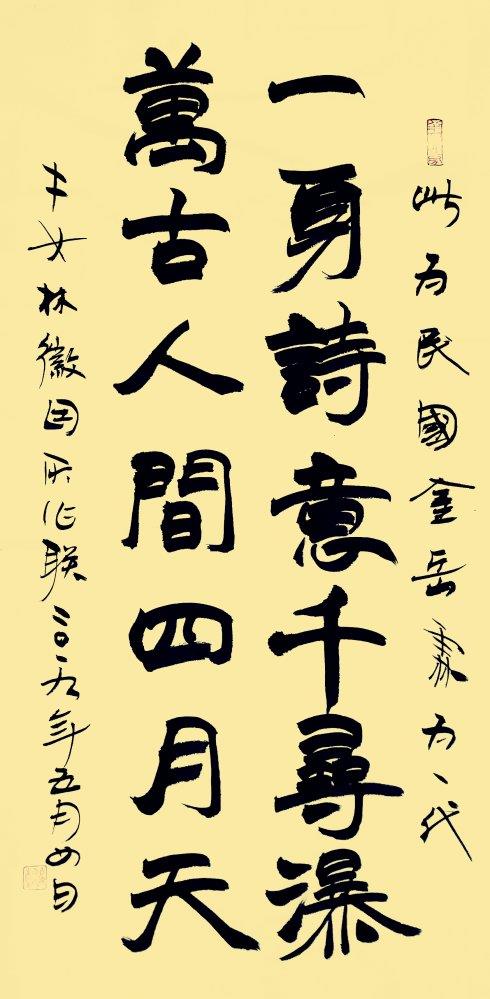 此为民國金岳霖为一代
一身詩意千尋瀑
萬古人間四月天
才女林徽因所作联二〇一九年五月四日